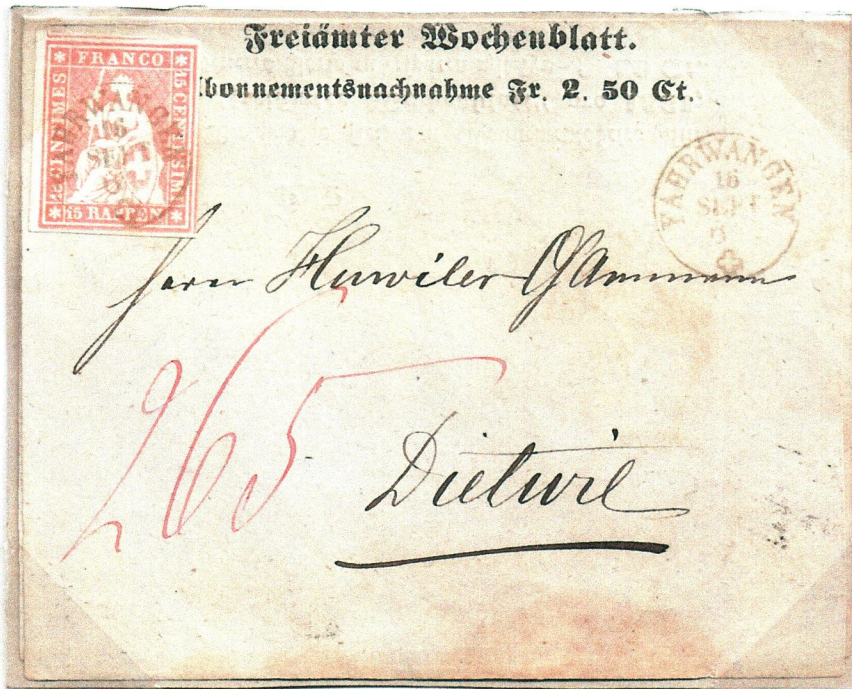 Freiämter Wochenblatt.
bonnementsnachnahme Fr. 2. 50 Ct.
FRANCO
15 CENTIMES
15 CENTESIMI
15 RAPPEN
FAHRWANGEN
16
SEPT
FAHRWANGEN
16
SEPT
Herrn Huwiler GAmmann
265
Dietwil